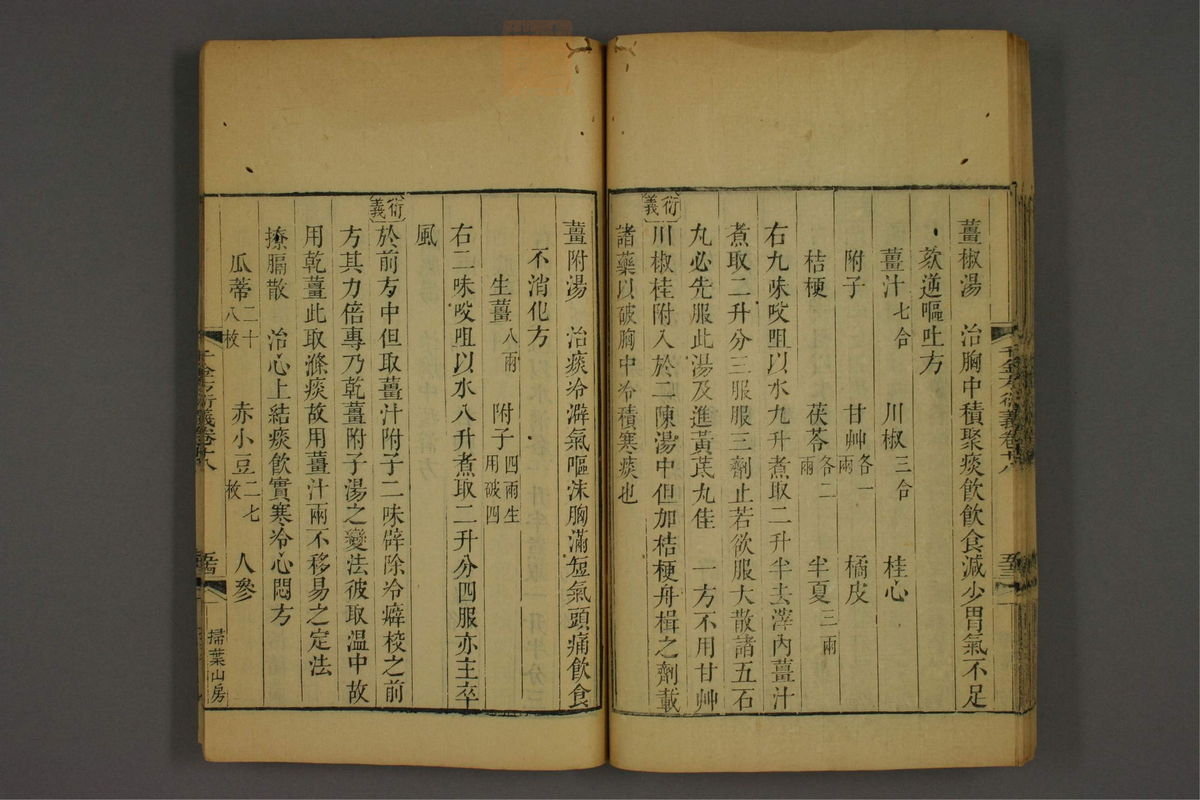 薑椒湯　治胸中積聚痰飲飲食減少胃氣不足
欬逆嘔吐方
薑汁七合　川椒三合　桂心
附子　甘艸各一兩　橘皮
桔梗　茯苓各二兩　半夏三兩
右九味㕮咀以水九升煮取二升半去滓內薑汁
煮取二升分三服服三劑止若欲服大散諸五石
丸必先服此湯及進黃芪丸佳　一方不用甘艸
衍義　川椒桂附入於二陳湯中但加桔梗舟楫之劑載
諸藥以破胸中冷積寒痰也
薑附湯　治痰冷澼氣嘔沫胸滿短氣頭痛飲食
不消化方
生薑八兩　附子四兩生用破四
右二味㕮咀以水八升煮取二升分四服亦主卒
風
衍義　於前方中但取薑汁附子二味辟除冷癖校之前
方其力倍專乃乾薑附子湯之變法彼取温中故
用乾薑此取滌痰故用薑汁兩不移易之定法
撩膈散　治心上結痰飲實寒冷心悶方
瓜蒂二十八枚　赤小豆二七枚　人參
千金方衍義卷十八　五十四
掃葉山房